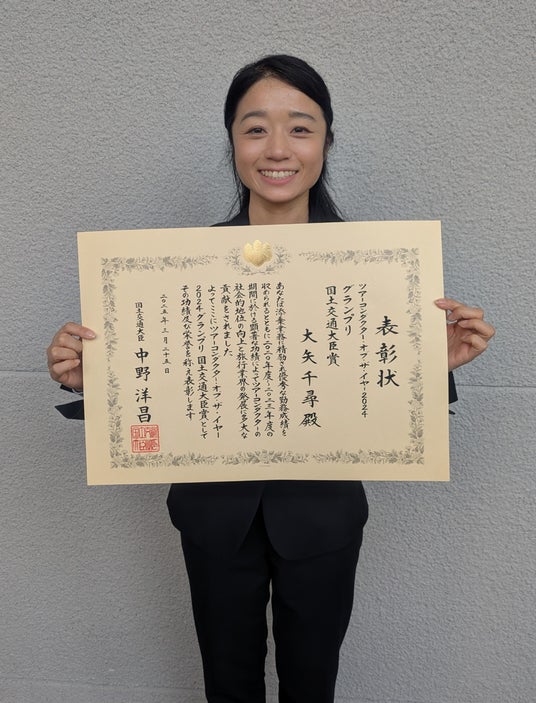 表彰状
ツアーコンダクター・オブ・ザ・イヤー2024
グランプリ
国土交通大臣賞
大矢千尋殿
あなたは添乗業務に精励され優秀な勤務成績を
収められるとともに二〇二〇年度~二〇二三年度の
期間における顕著な功績によってツアーコンダクターの
社会的地位の向上と旅行業界の発展に多大な
貢献をされました
よってここにツアーコンダクター・オブ・ザ・イヤー
2024グランプリ国土交通大臣賞として
その功績及び栄誉を称え表彰します
二〇二五年三月二十五日
国土交通大臣 中野洋昌